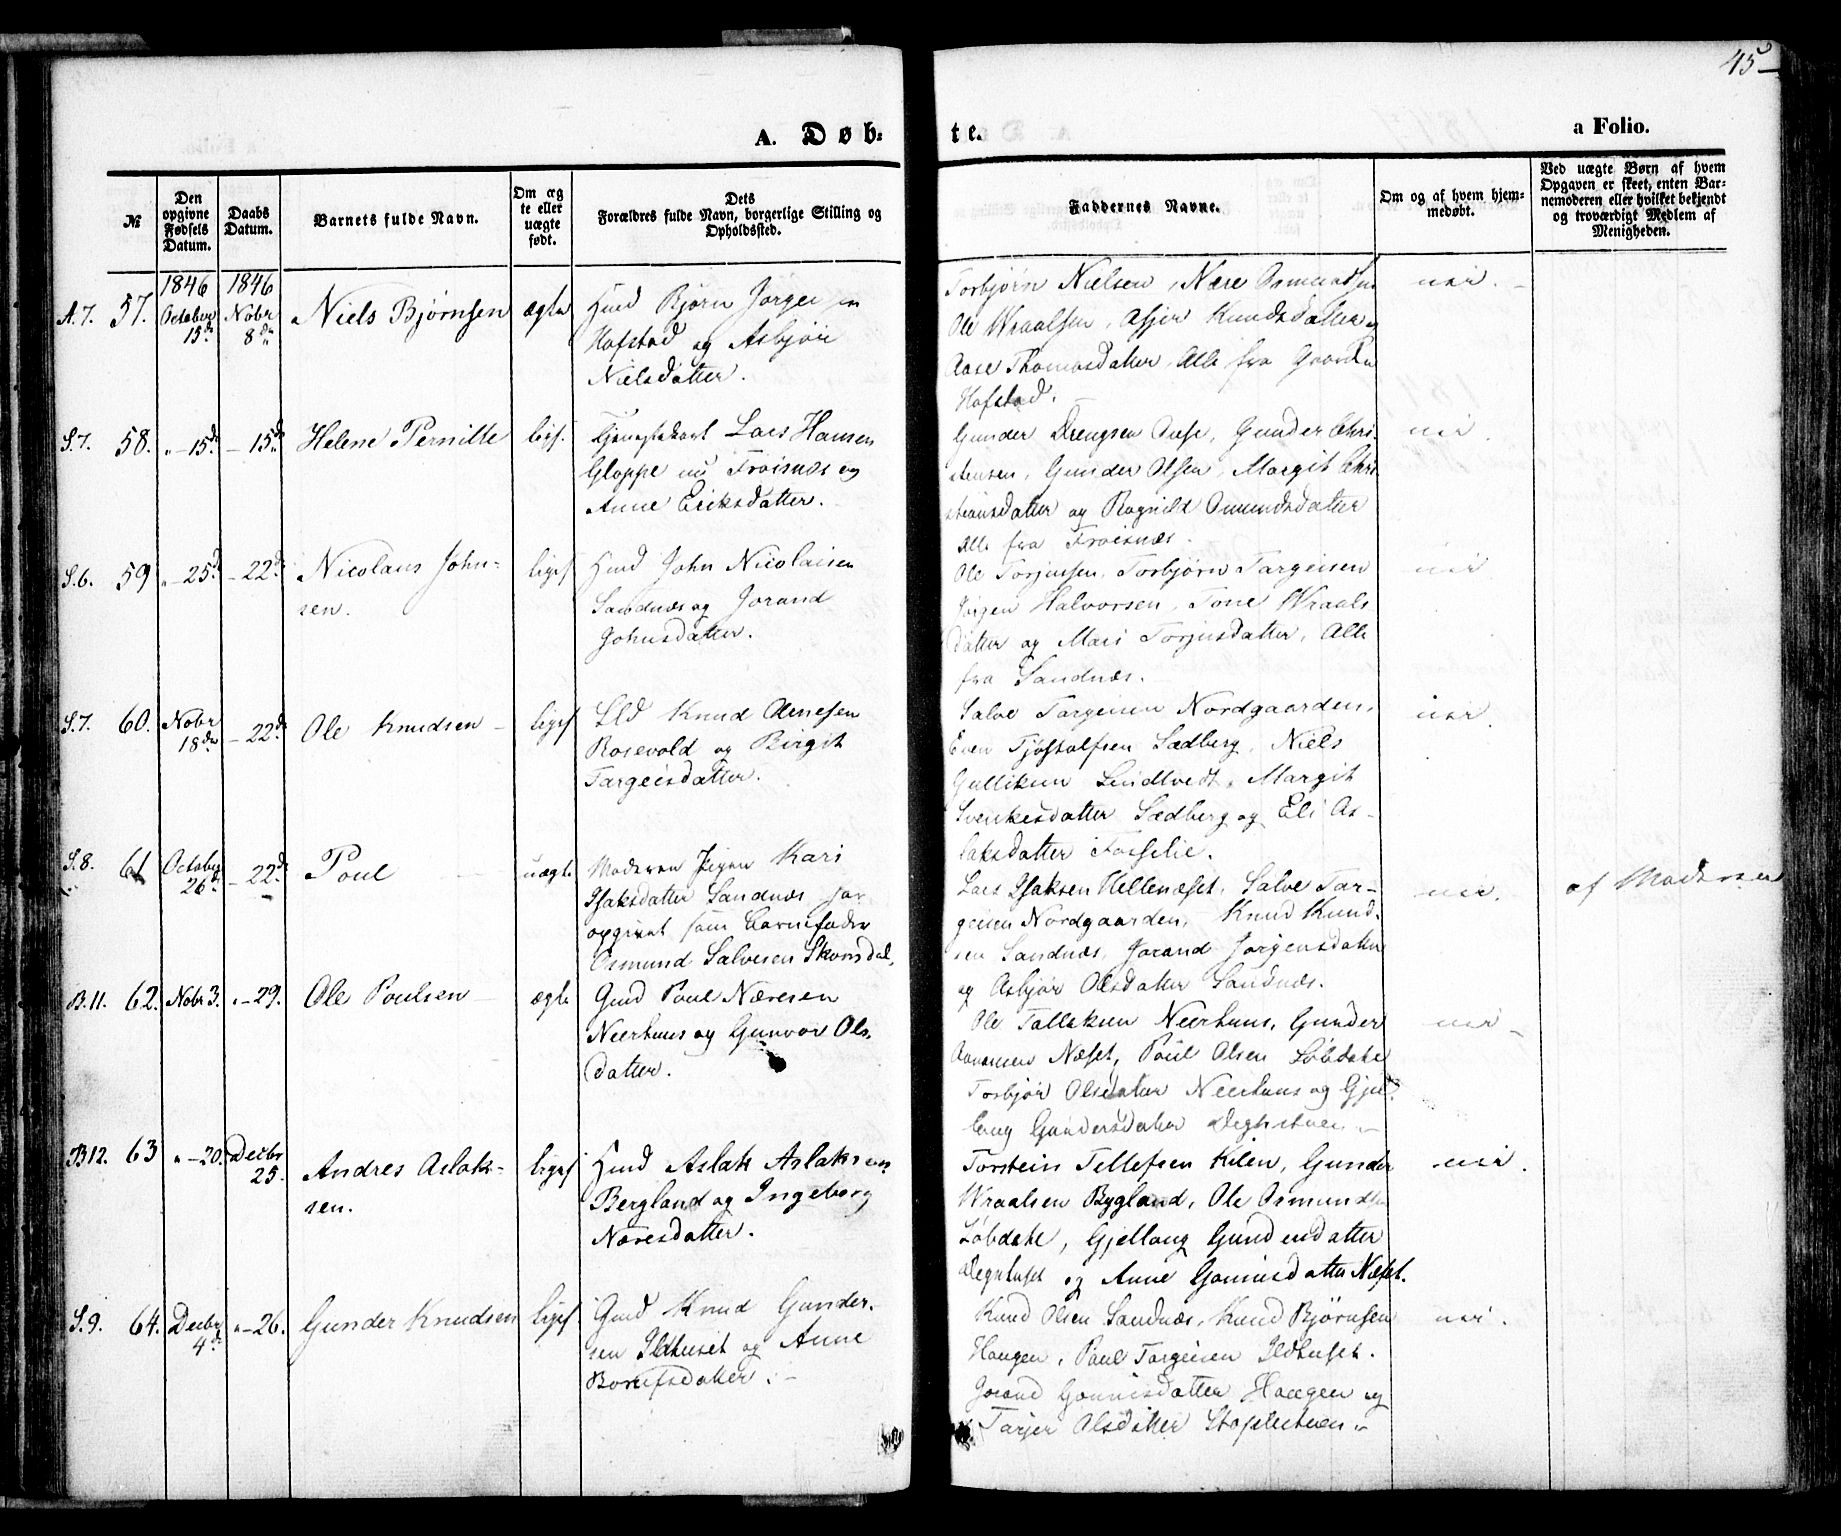 45
A. Døb- te.
a Folio.
№
Den opgivne Fødsels Datum.
Daabs Datum.
Barnets fulde Navn.
Om ægte eller uægte født.
Dets Forældres fulde Navn, borgerlige Stilling og Opholdssted.
Faddernes Navne.
Om og af hvem hjemmedøbt.
Ved uægte Børn af hvem Opgaven er skeet, enten Barnemoderen eller hvilket bekjendt og troværdigt Medlem af Menigheden.
A.7. 57. 1846 October 15de 1846 Nobr 8de Niels Bjørnsen ægte
Hmd Bjørn
Hofstad og Asbjør
Nielsdatter.
Torbjørn Nielsen, Nære Osmundsen
Ole Wraalsen, Asjer Knudsdatter og
Aase Thomasdatter, Alle fra Gaarden
Hofstad.
nei.
S.7. 58. " - 15de - 15de Helene Pernille ligs.
Lars Hansen
Gloppe nu Froisnæs og
Anne Eriksdatter.
Gunder Drengsen Ouse, Gunder Chri-
stensen, Gunder Olsen, Margit Chri
stiansdatter og Ragnild Omundsdatter
Alle fra Froisnæs.
nei.
S.6. 59 " - 25de - 22de Nicolaus John-
sen.
ligs
Hmd John Nicolaisen
Sandnæs og Jorand
Johnsdatter.
Ole Torjussen, Torbjørn Targeisen
Jørgen Halvorsen, Tone Wraals
datter og Mari Torjusdatter, Alle
fra Sandnæs.
nei
S.7. 60. Nobr 18de - 22de Ole Knudsen - ligs
Knud Arnesen
Rosevold og Birgit
Targeisdatter.
Salve Targeisen Nordgaarden,
Even Tjøstolfsen Sædberg, Niels
Gulliksen Lindtvedt, Margit
Svenkesdatter Sædberg og Eli As-
laksdatter Fosselie.
nei.
S.8. 61 October 26de - 22de Poul uægte
Moderen Pigen Kari
Isaksdatter Sandnæs har
opgivet som Barnefader
Osmund Salvesen Skomedal.
Lars Isaksen Hellenæset, Salve Tar-
geisen Nordgaarden, Knud Knud-
sen Sandnæs, Jorand Jørgensdatter
og Asbjør Olsdatter Sandnæs.
nei. af Moderen
B.11. 62. Nobr 3. " - 29. Ole Poulsen - ægte
Gmd Poul Næresen
Neerhuus og Gunvor Ols-
datter.
Ole Tallaksen Neerhuus, Gunder
Aanonsen Næset, Poul Olsen Løbdahl
Torbjør Olsdatter Neerhuus og Gjel-
laug Gundersdatter
nei -
B12. 63 " - 20. Decbr 25. Andres Aslak-
sen.
ligs
Hmd Aslak Aslaksen
Bergland og Ingeborg
Næresdatter.
Torstein Tellefsen Kilen, Gunder
Wraalsen Bygland, Ole Osmundsen
Løbdahl, Gjellaug Gundersdatter
og Anne Gunnisdatter Næset.
nei.
S.9. 64. Decbr 4de " - 26. Gunder Knudsen ligs
Gmd Knud Gunder-
sen Ildhuset og Anne
Knud Olsen Sandnæs, Knud Bjørnsen
Haugen, Poul Targeisen Ildhuset.
Jorand Gunnisdatter Haugen og
Tarjer Olsdatter
nei.